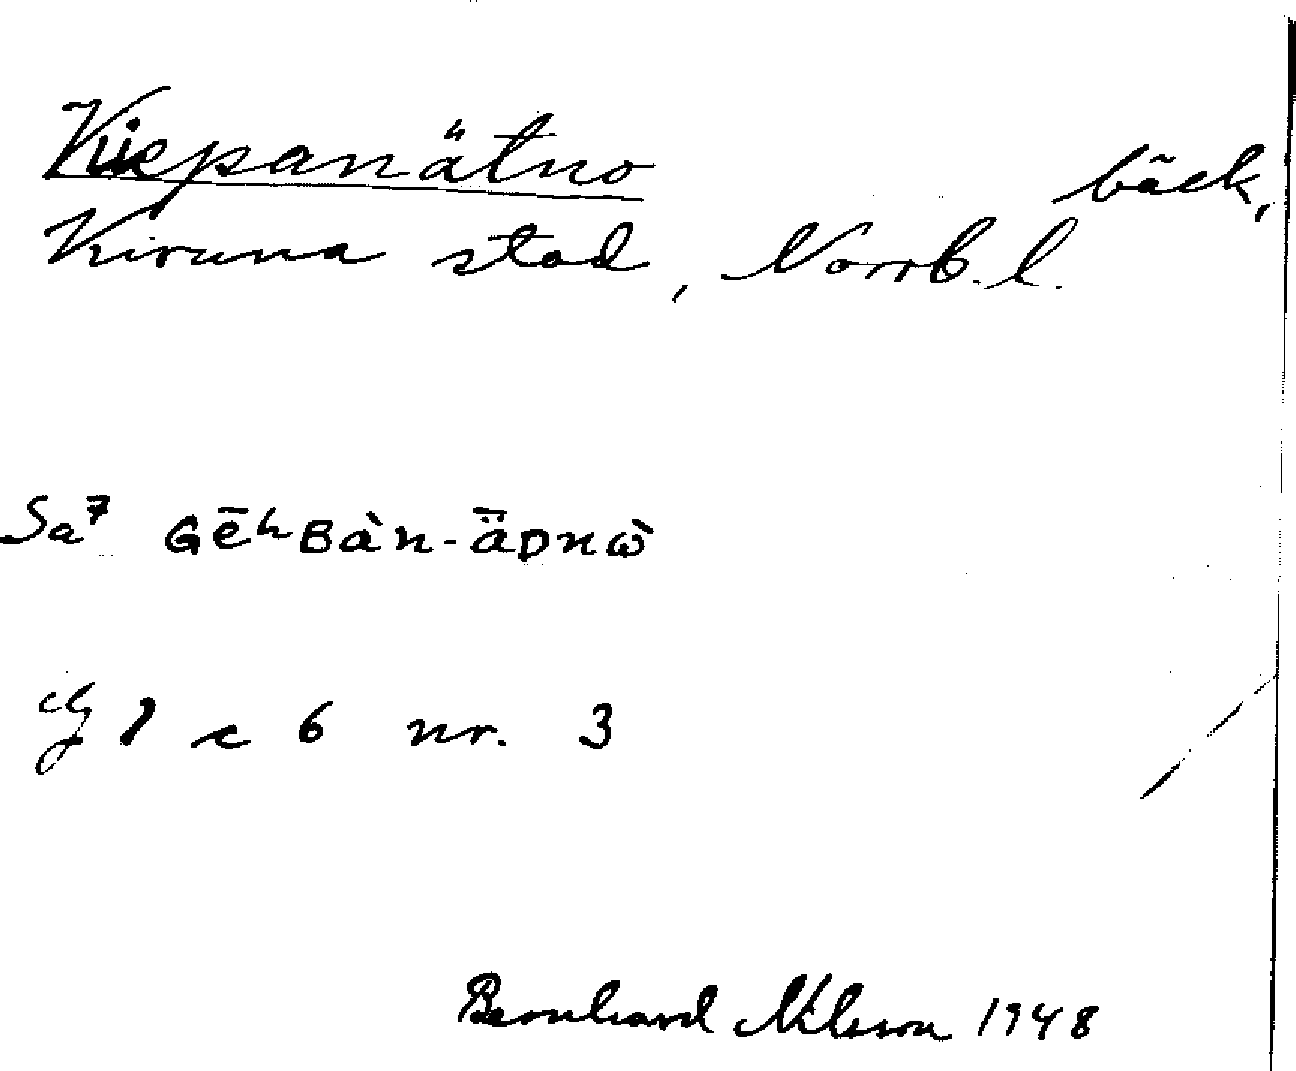 Kiepanätno bäck,
Kiruna stad, Norrb. l.
Sa⁷ Gēʰʙàn-ǟᴅnὼ
1 c 6 nr. 3
Bernhard Nilsson 1948